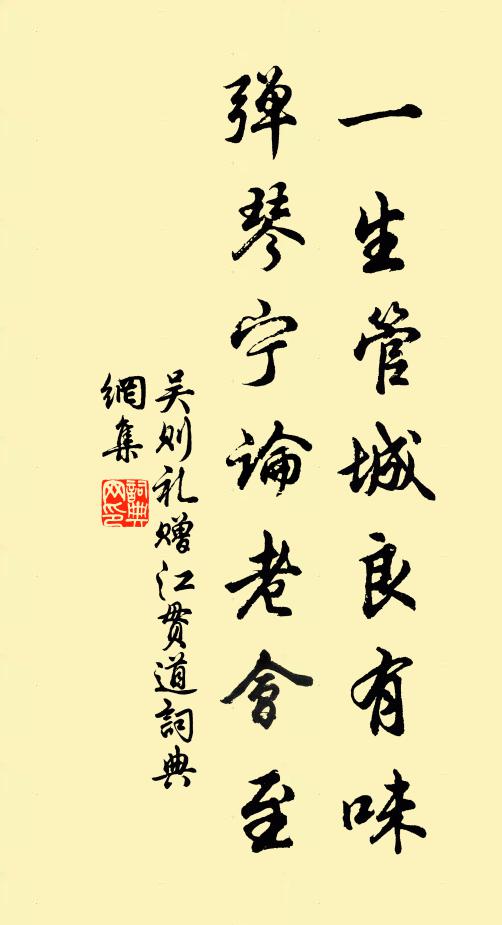 一生管城良有味
弹琴宁論老會至
吴则礼赠江贯道詞典
網集
詞典
网印